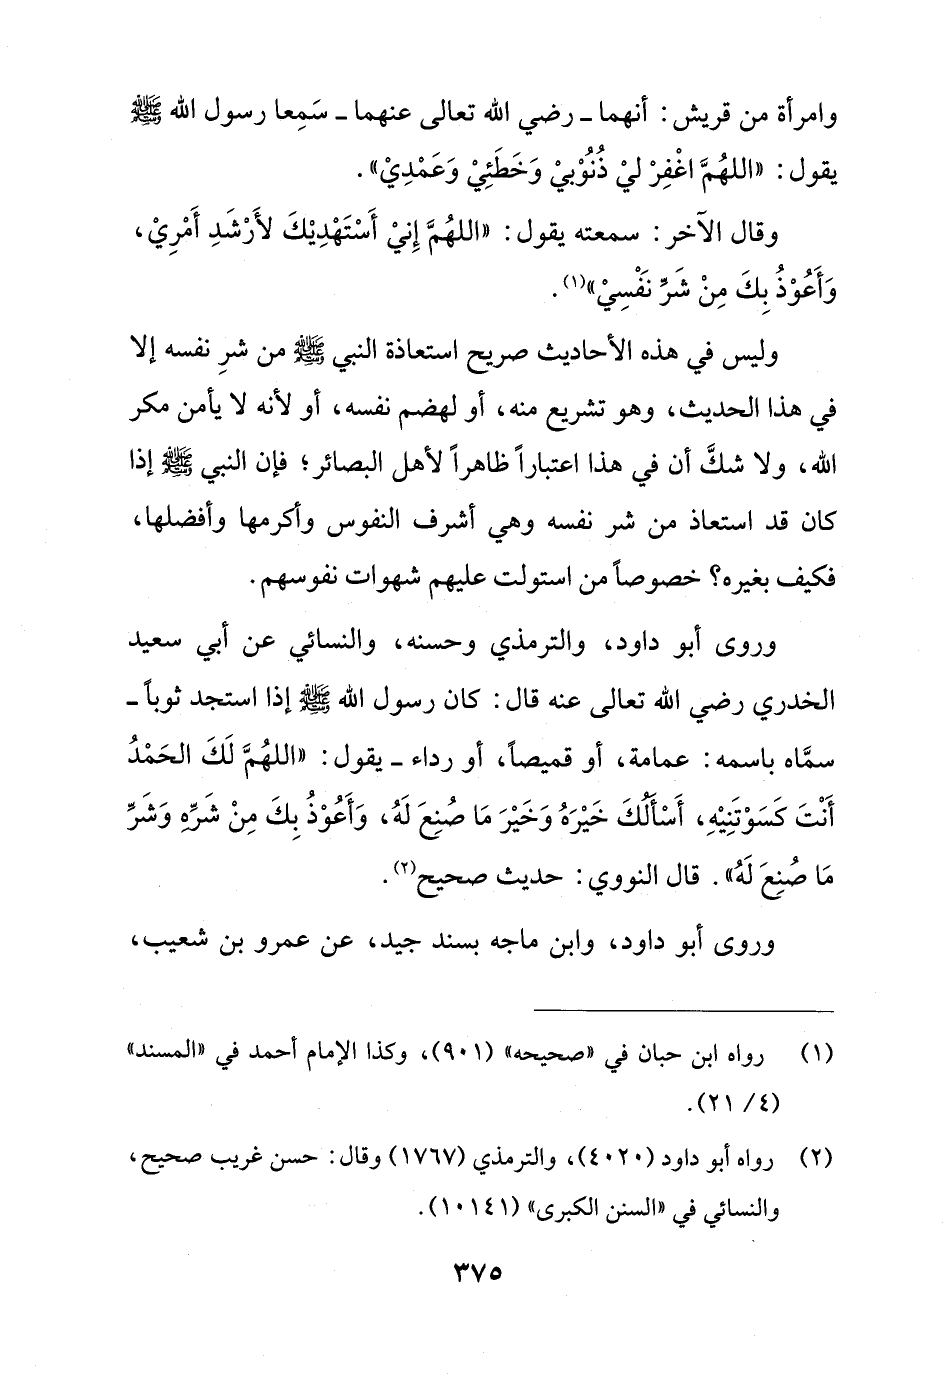 وامرأة من قريش: أنهما ـ رضي الله تعالى عنهما ـ سَمِعا رسول الله ﷺ
يقول: «اللهُمَّ اغْفِرْ لِيْ ذُنُوْبِيْ وَخَطَئِيْ وَعَمْدِيْ».
وقال الآخر: سمعته يقول: «اللهُمَّ إِنِيْ أَسْتَهْدِيْكَ لأَرْشَدِ أَمْرِيْ،
وَأَعُوْذُ بِكَ مِنْ شَرِّ نَفْسِيْ»(١).
وليس في هذه الأحاديث صريح استعاذة النبي ﷺ من شرِ نفسه إلا
في هذا الحديث، وهو تشريع منه، أو لهضم نفسه، أو لأنه لا يأمن مكر
الله، ولا شكَّ أن في هذا اعتباراً ظاهراً لأهل البصائر؛ فإن النبي ﷺ إذا
كان قد استعاذ من شر نفسه وهي أشرف النفوس وأكرمها وأفضلها،
فكيف بغيره؟ خصوصاً من استولت عليهم شهوات نفوسهم.
وروى أبو داود، والترمذي وحسنه، والنسائي عن أبي سعيد
الخدري رضي الله تعالى عنه قال: كان رسول الله ﷺ إذا استجد ثوباً ـ
سمَّاه باسمه: عمامة، أو قميصاً، أو رداء ـ يقول: «اللهُمَّ لَكَ الحَمْدُ
أَنْتَ كَسَوْتَنِيْهِ، أَسْأَلُكَ خَيْرَهُ وَخَيْرَ مَا صُنِعَ لَهُ، وَأَعُوْذُ بِكَ مِنْ شَرِّهِ وَشَرِّ
مَا صُنِعَ لَهُ». قال النووي: حديث صحيح(٢).
وروى أبو داود، وابن ماجه بسند جيد، عن عمرو بن شعيب،
(١) رواه ابن حبان في «صحيحه» (٩٠١)، وكذا الإمام أحمد في «المسند»
(٤/ ٢١).
(٢) رواه أبو داود (٤٠٢٠)، والترمذي (١٧٦٧) وقال: حسن غريب صحيح،
والنسائي في «السنن الكبرى» (١٠١٤١).
٣٧٥